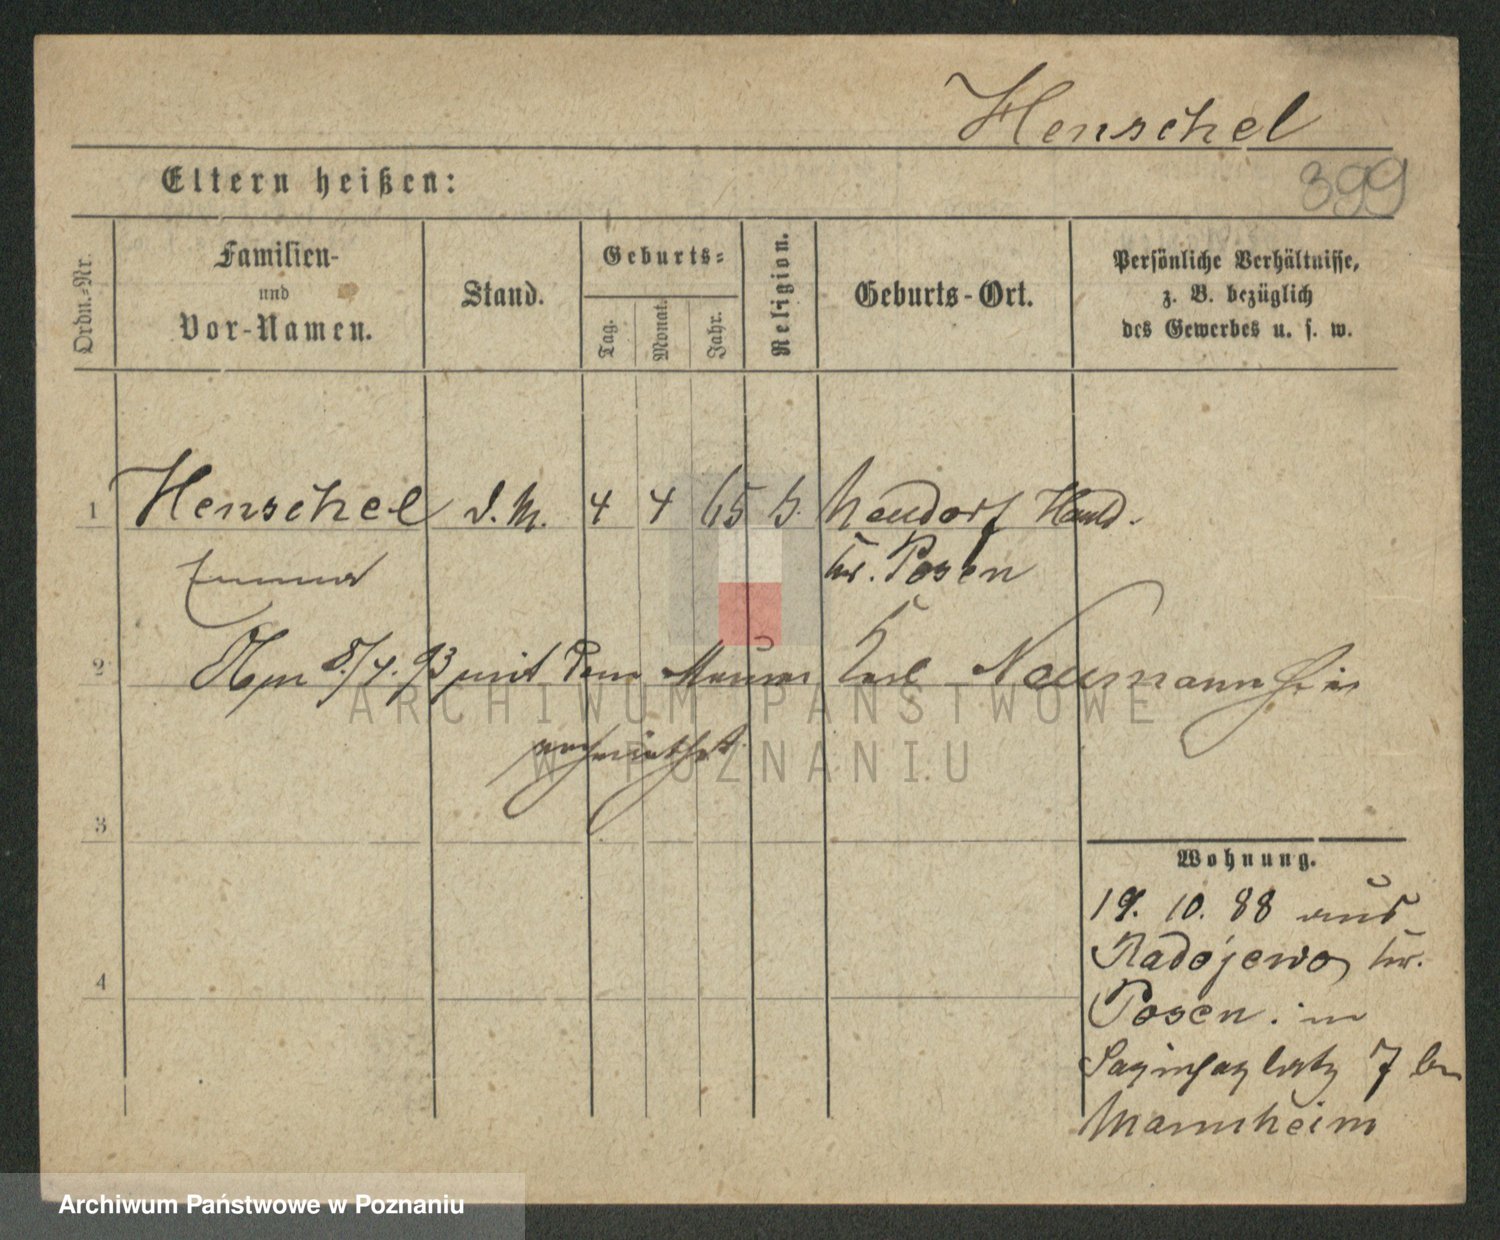 Henschel
399
Eltern heißen:
Ordn.-Nr.
Familien-
und
Vor-Namen.
Stand.
Geburts-
Tag.
Monat.
Jahr.
Religion.
Geburts-Ort.
Persönliche Verhältnisse,
z. B. bezüglich
des Gewerbes u. s. w.
1 Henschel d. M. 4 4 65 Neudorf Hauld.
Emma Kr. Posen
2 Am 8/4. 93 mit dem Maurer Karl Naumann hier
verheirathet
3
Wohnung.
19. 10. 88 aus
Radojewo, Kr.
Posen. in
4
Sapiehaplatz 7 bei
Mannheim
ARCHIWUM PAŃSTWOWE
W POZNANIU
Archiwum Państwowe w Poznaniu